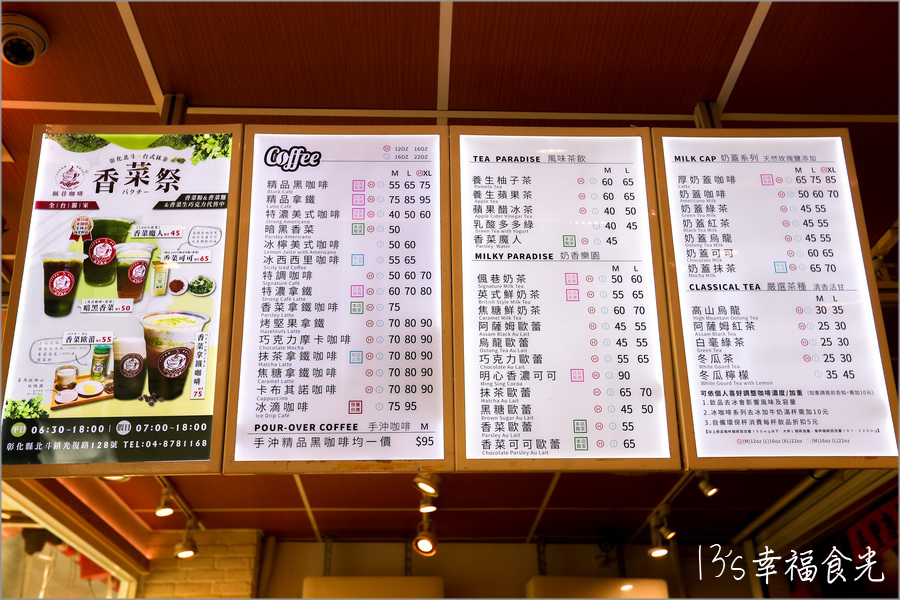 彰化北斗．台式抹茶
香菜祭
パクチー
偑巷咖啡
全|台|獨|家
香菜粉&香菜麵
&香菜生巧克力代售中
香菜魔人 45
香菜可可 65
暗黑香菜 50
香菜歐蕾 55
香菜拿鐵咖啡 75
平日 06:30-18:00 假日 07:00-18:00
彰化縣北斗鎮光復路128號 TEL:04-8781168
Coffee
12OZ 16OZ
16OZ 22OZ
M L XL
精品黑咖啡 55 65 75
Black Café
精品拿鐵 75 85 95
Café Latte
特濃美式咖啡 40 50 60
Strong Americano
暗黑香菜 50
Parsley Americano
冰檸美式咖啡 50 60
冰西西里咖啡 55 65
Sicily Iced Coffee
特調咖啡 50 60 70
Signature Café
特濃拿鐵 60 70 80
Strong Café Latte
香菜拿鐵咖啡 75
Parsley Latte
烤堅果拿鐵 70 80 90
Hazelnuts Latte
巧克力摩卡咖啡 70 80 90
Chocolate Mocha
抹茶拿鐵咖啡 70 80 90
Matcha Latte
焦糖拿鐵咖啡 70 80 90
Caramel Latte
卡布其諾咖啡 70 80 90
Cappuccino
冰滴咖啡 75 95
Ice Drip Café
POUR-OVER COFFEE 手沖咖啡 M
手沖精品黑咖啡均一價 $95
TEA PARADISE 風味茶飲
M L
養生柚子茶 60 65
Pomelo Tea
養生蘋果茶 60 65
Apple Tea
蘋果醋冰茶 40 50
Apple Cider Vinegar Tea
乳酸多多綠 40 45
Green Tea with Yogurt
香菜魔人 45
Parsley Water
MILKY PARADISE 奶香樂園
M L
偑巷奶茶 50 60
Signature Milk Tea
英式鮮奶茶 55 65
British Style Milk Tea
焦糖鮮奶茶 60 70
Caramel Milk Tea
阿薩姆歐蕾 45 55
Assam Black Au Lait
烏龍歐蕾 45 55
Oolong Tea Au Lait
巧克力歐蕾 55 65
Chocolate Au Lait
明心香濃可可 90
Ming Sing Cocoa
抹茶歐蕾 65 70
Matcha Au Lait
黑糖歐蕾 45 50
Brown Sugar Au Lait
香菜歐蕾 55
Parsley Au Lait
香菜可可歐蕾 65
Chocolate Parsley Au Lait
MILK CAP 奶蓋系列 天然玫瑰鹽添加
M L XL
厚奶蓋咖啡 65 75 85
Latte
奶蓋咖啡 50 60 70
Americano Milk
奶蓋綠茶 45 55
Green Tea Milk
奶蓋紅茶 45 55
Black Tea Milk
奶蓋烏龍 45 55
Oolong Tea Milk
奶蓋可可 60 65
Chocolate Milk
奶蓋抹茶 65 70
Matcha Milk
CLASSICAL TEA 嚴選茶種 清香活甘
M L
高山烏龍 30 35
High Mountain Oolong Tea
阿薩姆紅茶 25 30
Assam Black Tea
白毫綠茶 25 30
Green Tea
冬瓜茶 25 30
White Gourd Tea
冬瓜檸檬 35 45
White Gourd Tea with Lemon
可依個人喜好調整咖啡濃度/加量
1.飲品去冰會影響風味及容量
2.冰咖啡系列去冰加牛奶滿杯需加10元
3.自備環保杯消費每杯飲品折扣5元
13's幸福食光